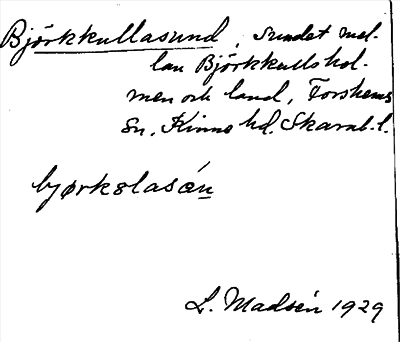 Björkkullasund, sundet mel-
lan Björkkullshol-
men och land, Forshems
Sn, Kinne hd. Skarab. l.
bjørkslasén
L. Madsén 1929